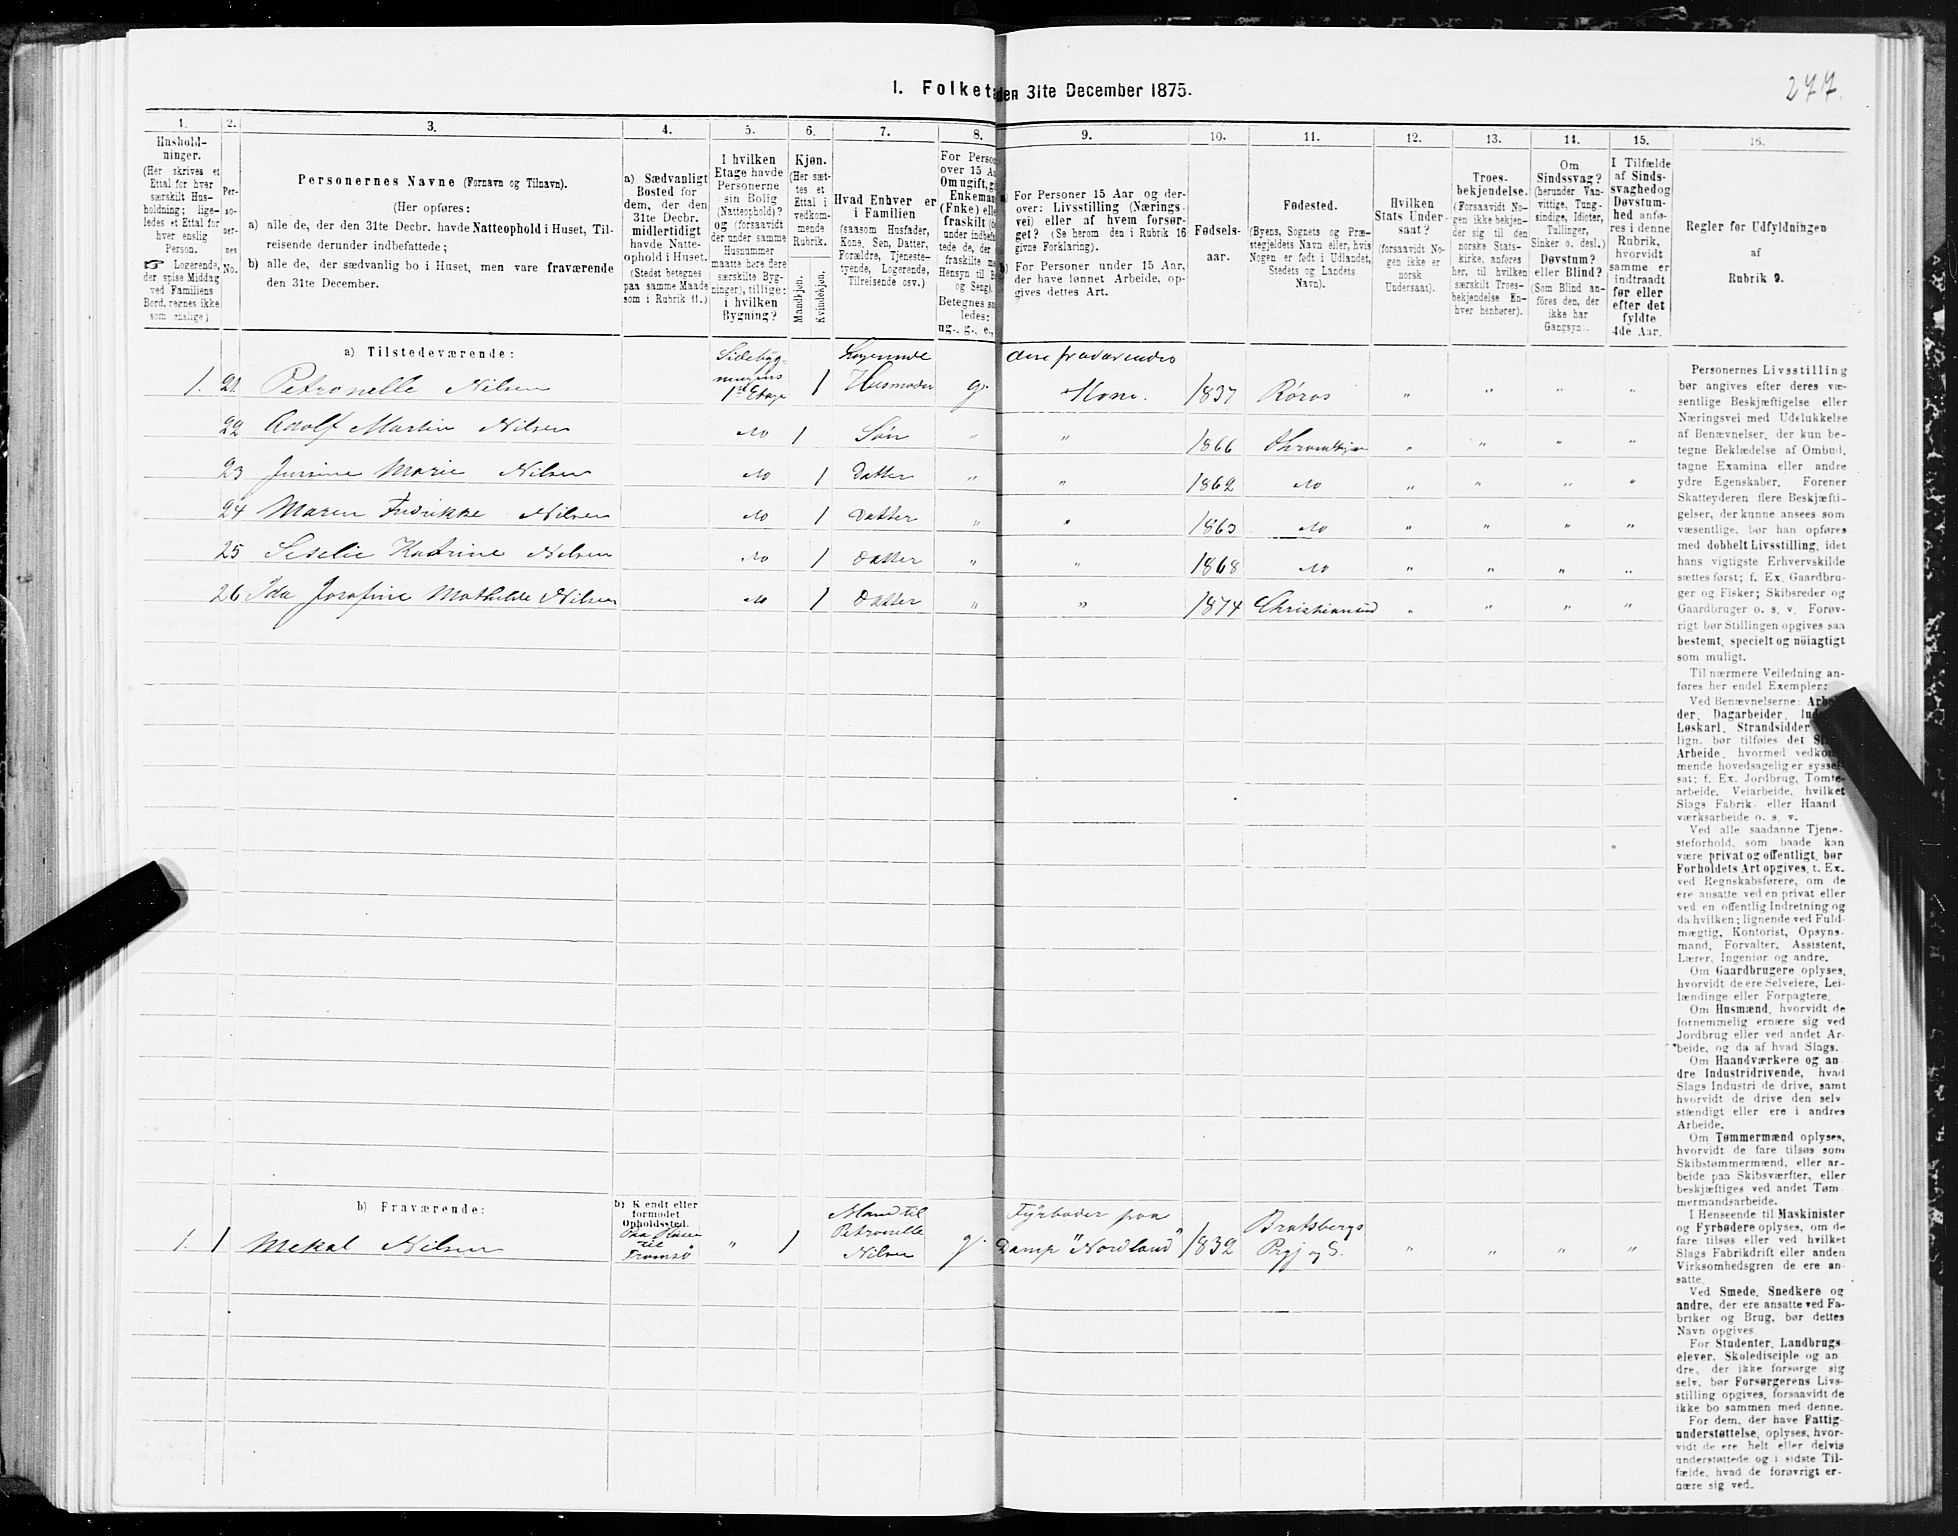 277.
1. Folket
den 31te December 1875.
1.
Hushold-
ninger.
(Her skrives et
Ettal for hver
særskilt Hus-
holdning; lige-
ledes et Ettal for
hver enslig
Person.
☞ Logerende,
der spise Middag
ved Familiens
Bord, regnes ikke
som enslige.)
2.
Per-
so-
ner-
nes
No.
3.
Personernes Navne (Fornavn og Tilnavn).
(Her opføres:
a) alle de, der den 31te Decbr. havde Natteophold i Huset, Til-
reisende derunder indbefattede;
b) alle de, der sædvanlig bo i Huset, men vare fraværende
den 31te December.
4.
a) Sædvanligt
Bosted for
dem, der den
31te Decbr.
midlertidigt
havde Natte-
ophold i Huset.
(Stedet betegnes
paa samme Maade
som i Rubrik 11.)
5.
I hvilken
Etage havde
Personerne
sin Bolig
(Natteophold)?
og (forsaavidt
der under samme
Husnummer
maatte høre flere
særskilte Byg-
ninger), tillige:
i hvilken
Bygning?
6.
Kjøn.
(Her sæt-
tes et
Ettal i
vedkom-
mende
Rubrik.
Mandkjøn.
Kvindekjøn.
7.
Hvad Enhver er
i Familien
(saasom Husfader,
Kone, Søn, Datter,
Forældre, Tjeneste-
tyende, Logerende,
Tilreisende osv.)
8.
For Person
over 15 Aa
Om ugift, gi
Enkema
(Enke) elle
fraskilt (
under indbefat
tede de, der
fraskilte m
Hensyn til B
og Seng).
Betegnes sa
ledes:
ug., g., e.,
9.
a) For Personer 15 Aar og der-
over: Livsstilling (Nærings-
vei) eller af hvem forsør-
get? (Se herom den i Rubrik 16
givne Forklaring).
b) For Personer under 15 Aar,
der have lønnet Arbeide, op-
gives dettes Art.
10.
Fødsels-
aar.
11.
Fødested.
(Byens, Sognets og Præ-
stegjeldets Navn eller, hvis
Nogen er født i Udlandet,
Stedets og Landets
Navn).
12.
Hvilken
Stats Under-
saat?
(forsaavidt No-
gen ikke er
norsk
Undersaat).
13.
Troes-
bekjendelse.
(Forsaavidt No-
gen ikke bekjen-
der sig til den
norske Stats-
kirke, anføres
her, til hvilken
særskilt Troes-
bekjendelse En-
hver henhører).
14.
Om
Sindssvag?
(herunder Van-
vittige, Tung-
sindige, Idioter,
Tullinger,
Sinker o. desl.)
Døvstum?
eller Blind?
(Som Blind an-
føres den, der
ikke har
Gangsyn).
15.
I Tilfælde
af Sinds-
svaghedog
Døvstum-
hed anfø-
res i denne
Rubrik,
hvorvidt
samme er
indtraadt
før eller
efter det
fyldte
4de Aar.
16.
Regler for Udfyldningen
af
Rubrik 9.
a) Tilstedeværende:
1. 21 Petronelle Nilsen Sidebyg-
ningens
1ste Etage 1 Logerende
Husmoder g. dens fraværendes
Kone. 1837 Røros " " " "
22 Adolf Martin Nilsen do 1 Søn " " 1866 Throndhjem " " " "
23 Jursine Marie Nilsen do 1 Datter " " 1862 do " " " "
24 Maren Fredrikke Nilsen do 1 Datter " " 1863 do " " " "
25 Siselie Katrine Nilsen do 1 Datter " " 1868 do " " " "
26 Ida Josefine Mathilde Nilsen do 1 Datter " " 1874 Christiansund " " " "
b) Fraværende:
b) Kendt eller
formodet
Opholdssted.
1. 1 Mekal Nilsen Paa Reise
til
Tromsø " 1 Mand til
Petronelle
Nilsen g. Fyrbøder paa
Damp "Nordland" 1832 Bratsbergs
Prgj og S. " " " "
Personernes Livsstilling
bør angives efter deres væ-
sentlige Beskjæftigelse eller
Næringsvei med Udelukkelse
af Benævnelser, der kun be-
tegne Beklædelse af Ombud,
tagne Examina eller andre
ydre Egenskaber. Forener
Skatteyderen flere Beskjæfti-
gelser, der kunne ansees som
væsentlige, bør han opføres
med dobbelt Livsstilling, idet
hans vigtigste Erhvervskilde
sættes først; f. Ex. Gaardbru-
ger og Fisker; Skibsreder og
Gaardbruger o. s. v. Forøv-
rigt bør Stillingen opgives saa
bestemt, specielt og nöiagtigt
som muligt.
Til nærmere Veiledning an-
føres her endel Exempler:
Ved Benævnelserne: Arbei-
der, Dagarbeider, Ind
Løskarl, Strandsidder
lign. bør tilføies det Sl
Arbeide, hvormed vedkom-
mende hovedsagelig er syssel-
sat; f. Ex. Jordbrug, Tomte-
arbeide, Veiarbeide, hvilket
Slags Fabrik- eller Haand-
værksarbeide o. s. v.
Ved alle saadanne Tjene-
steforhold, som baade kan
være privat og offentligt, bør
Forholdets Art opgives, f. Ex.
ved Regnskabsførere, om de
ere ansatte ved en privat eller
ved en offentlig Indretning og
da hvilken; lignende ved Fuld-
mægtig, Kontorist, Opsyns-
mand, Forvalter, Assistent,
Lærer, Ingeniør og andre.
Om Gaardbrugere oplyses,
hvorvidt de ere Selveiere, Lei-
lændinge eller Forpagtere.
Om Husmænd, hvorvidt de
fornemmelig ernære sig ved
Jordbrug eller ved andet Ar-
beide, og da af hvad Slags.
Om Haandværkere og an-
dre Industridrivende, hvad
Slags Industri de drive, samt
hvorvidt de drive den selv-
stændigt eller ere i andres
Arbeide.
Om Tømmermænd oplyses,
hvorvidt de fare tilsøs som
Skibstømmermænd, eller ar-
beide paa Skibsværfter, eller
beskjæftiges ved andet Tøm-
mermandsarbeide.
I Henseende til Maskinister
og Fyrbødere oplyses, om de
fare tilsøs eller ved hvilket
Slags Fabrikdrift eller anden
Virksomhedsgren de ere an-
satte.
Ved Smede, Snedkere og
andre, der ere ansatte ved Fa-
briker og Brug, bør dettes
Navn opgives.
For Studenter, Landbrugs-
elever, Skoledisciple og an-
dre, der ikke forsørge sig
selv, bør Forsørgerens Livs-
stilling opgives, forsaavidt de
ikke bo sammen med denne.
For dem, der have Fattig-
understøttelse, oplyses, hvor-
vidt de ere helt eller delvis
understøttede og i sidste Til-
fælde, hvad de forøvrigt er-
nære sig ved.